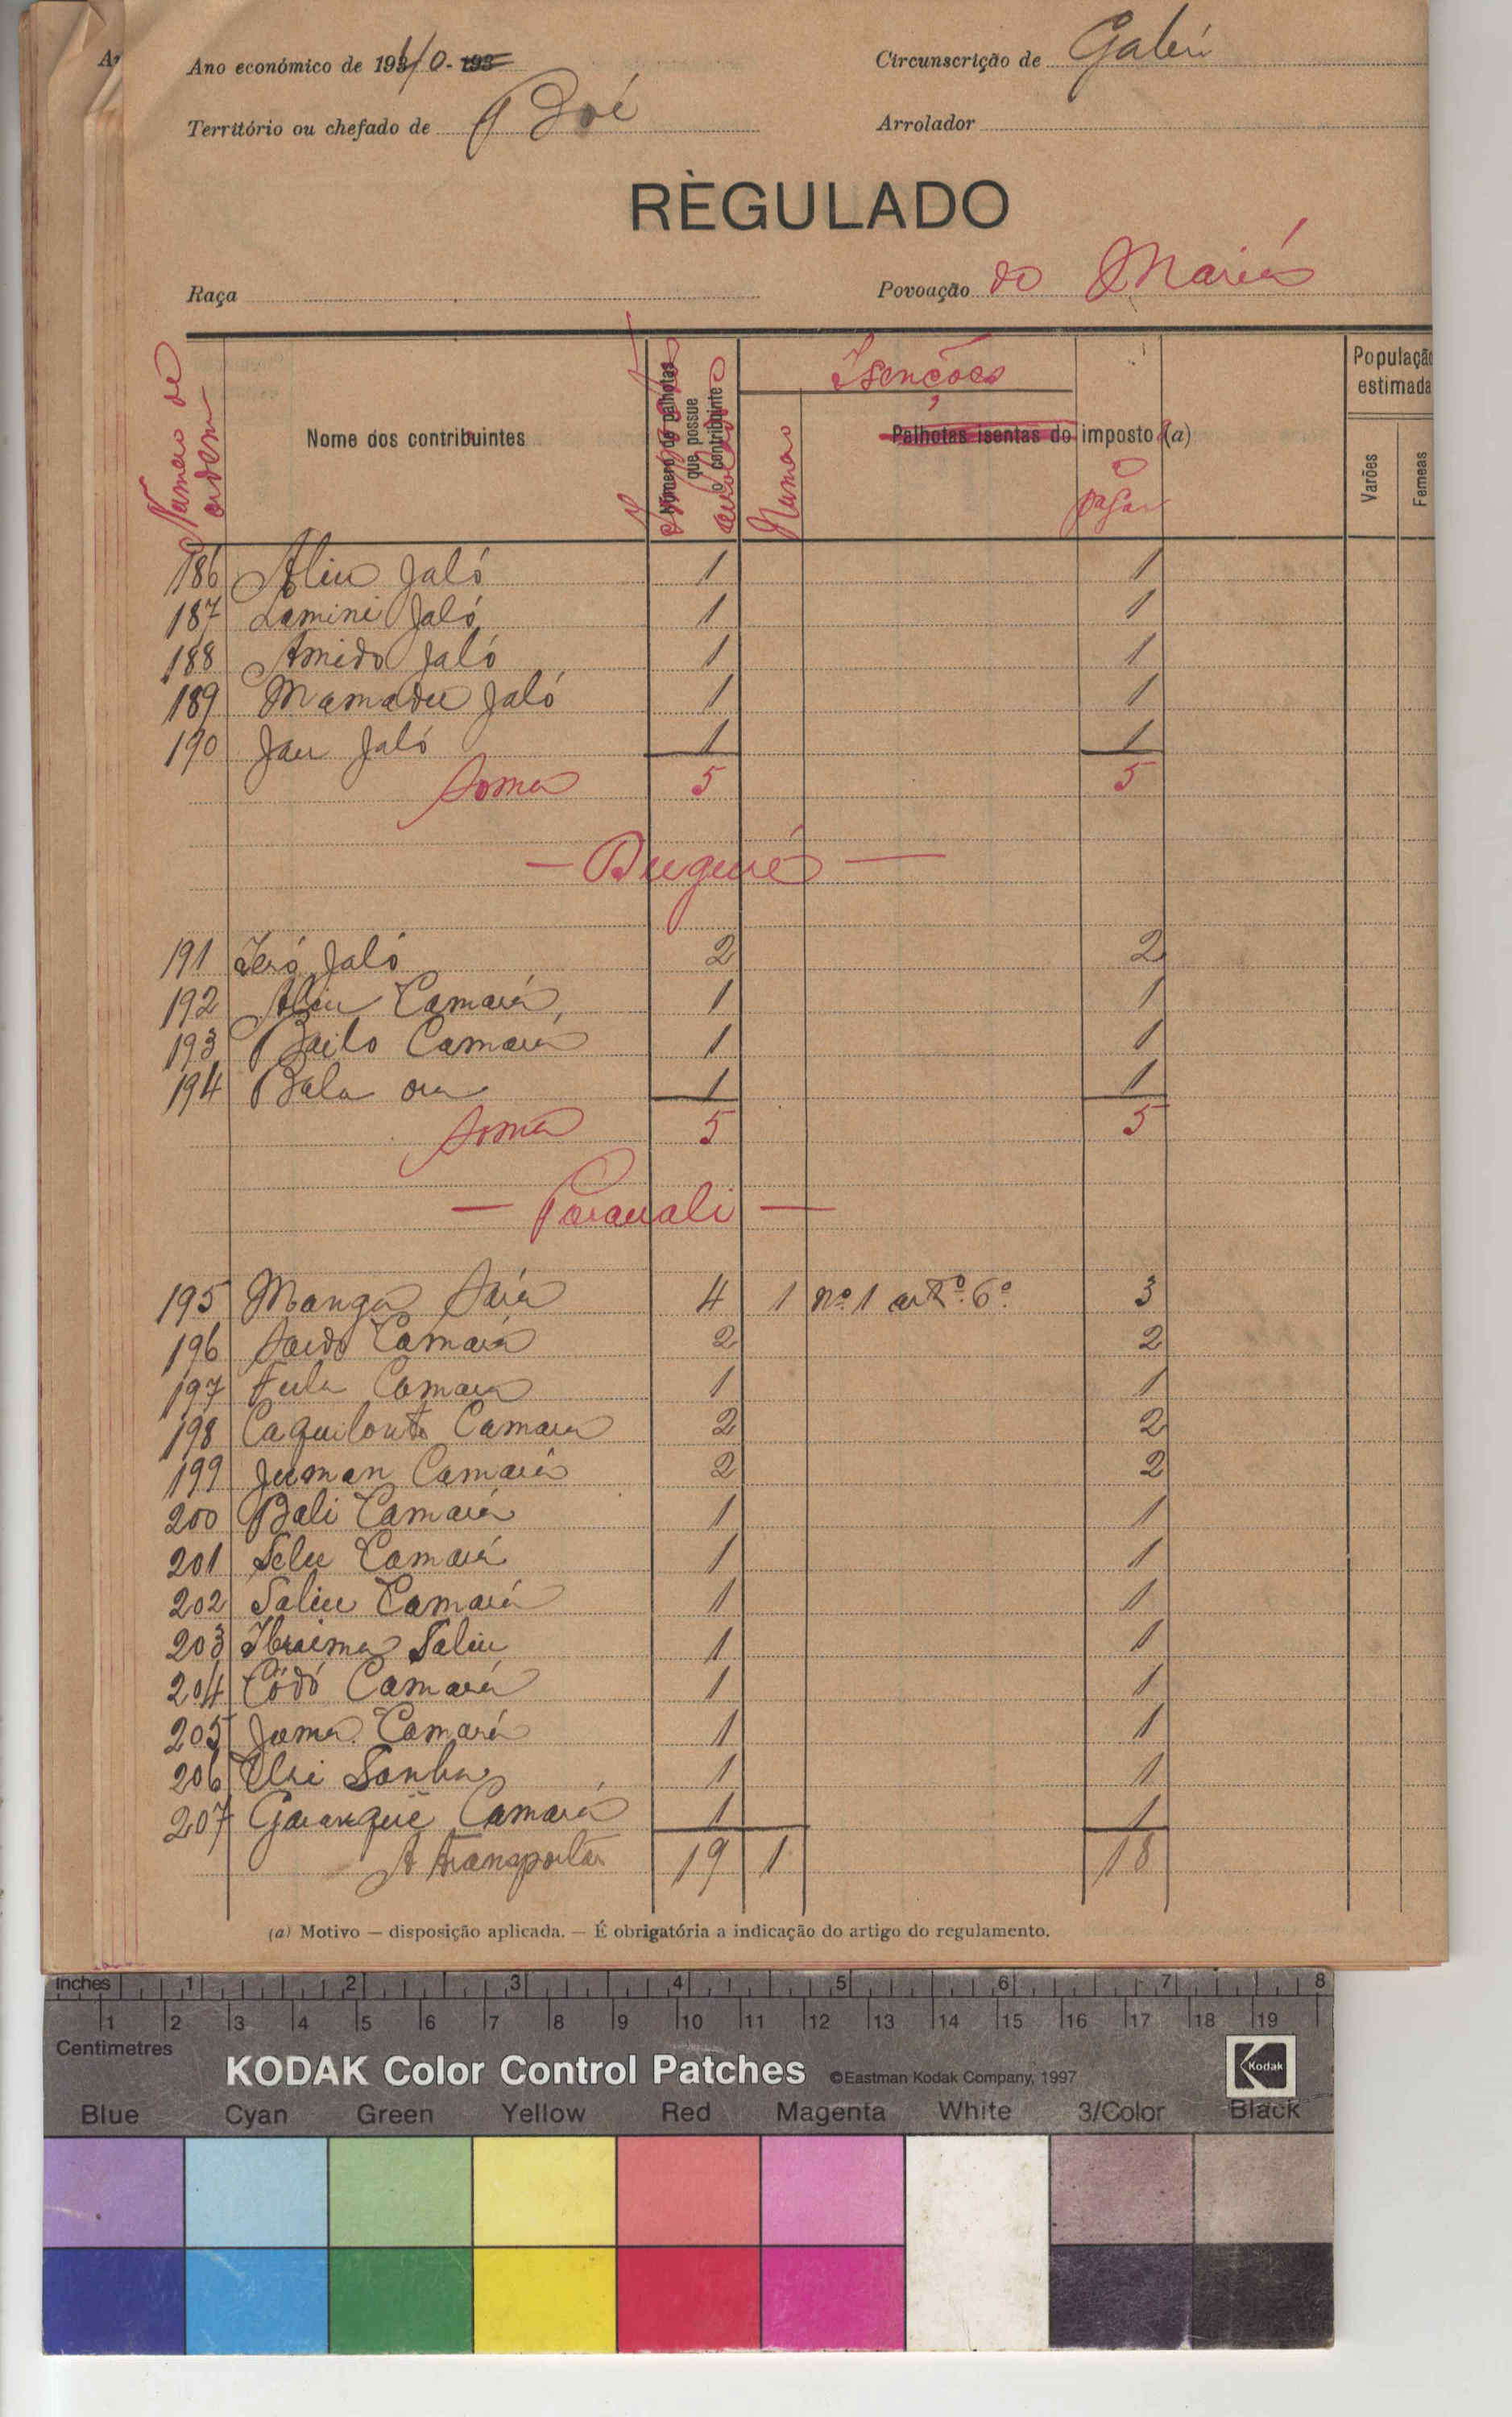 Ano económico de 1940-193
Circunscrição de Gabú
Território ou chefado de Boé
Arrolador
RÈGULADO
Raça
Povoação do Mariá
Numero de ordem
Nome dos contribuintes
Número de palhotas que possue o contribuinte
Isenções
Palhotas isentas do imposto (a)
a pagar
População estimada
Varões
Femeas
186 Aliu Jaló 1 1
187 Lamini Jaló 1 1
188 Amido Jaló 1 1
189 Mamadu Jaló 1 1
190 Jau Jaló 1 1
Soma 5 5
— Buguré —
191 Iéró Jaló 2 2
192 Aliu Camará 1 1
193 Bailo Camará 1 1
194 Bala 1 1
Soma 5 5
— Parauali —
195 Manga Sára 4 1 nº 1 artº. 6º. 3
196 Saido Camará 2 2
197 Fula Camara 1 1
198 Camara 2 2
199 Juman Camará 2 2
200 Bali Camará 1 1
201 Selu Camará 1 1
202 Saliu Camará 1 1
203 Ibraima Saliu 1 1
204 Códó Camará 1 1
205 Jama Camará 1 1
206 Sanha 1 1
207 Camará 1 1
A transportar 19 1 18
(a) Motivo — disposição aplicada. — É obrigatória a indicação do artigo do regulamento.
inches 1 2 3 4 5 6 7 8
1 2 3 4 5 6 7 8 9 10 11 12 13 14 15 16 17 18 19
Centimetres
KODAK Color Control Patches ©Eastman Kodak Company, 1997 Kodak
Blue Cyan Green Yellow Red Magenta White 3/Color Black